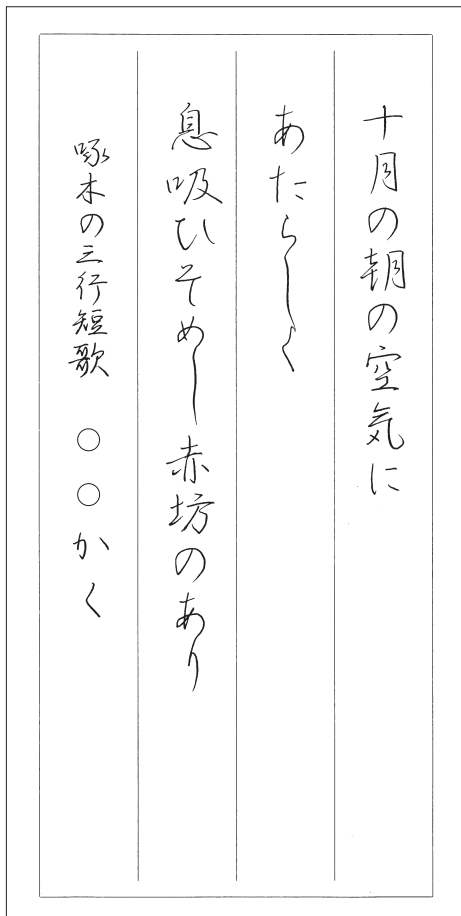 十月の朝の空気に
あたらしく
息吸ひそめし赤坊のあり
啄木の三行短歌 ○○かく